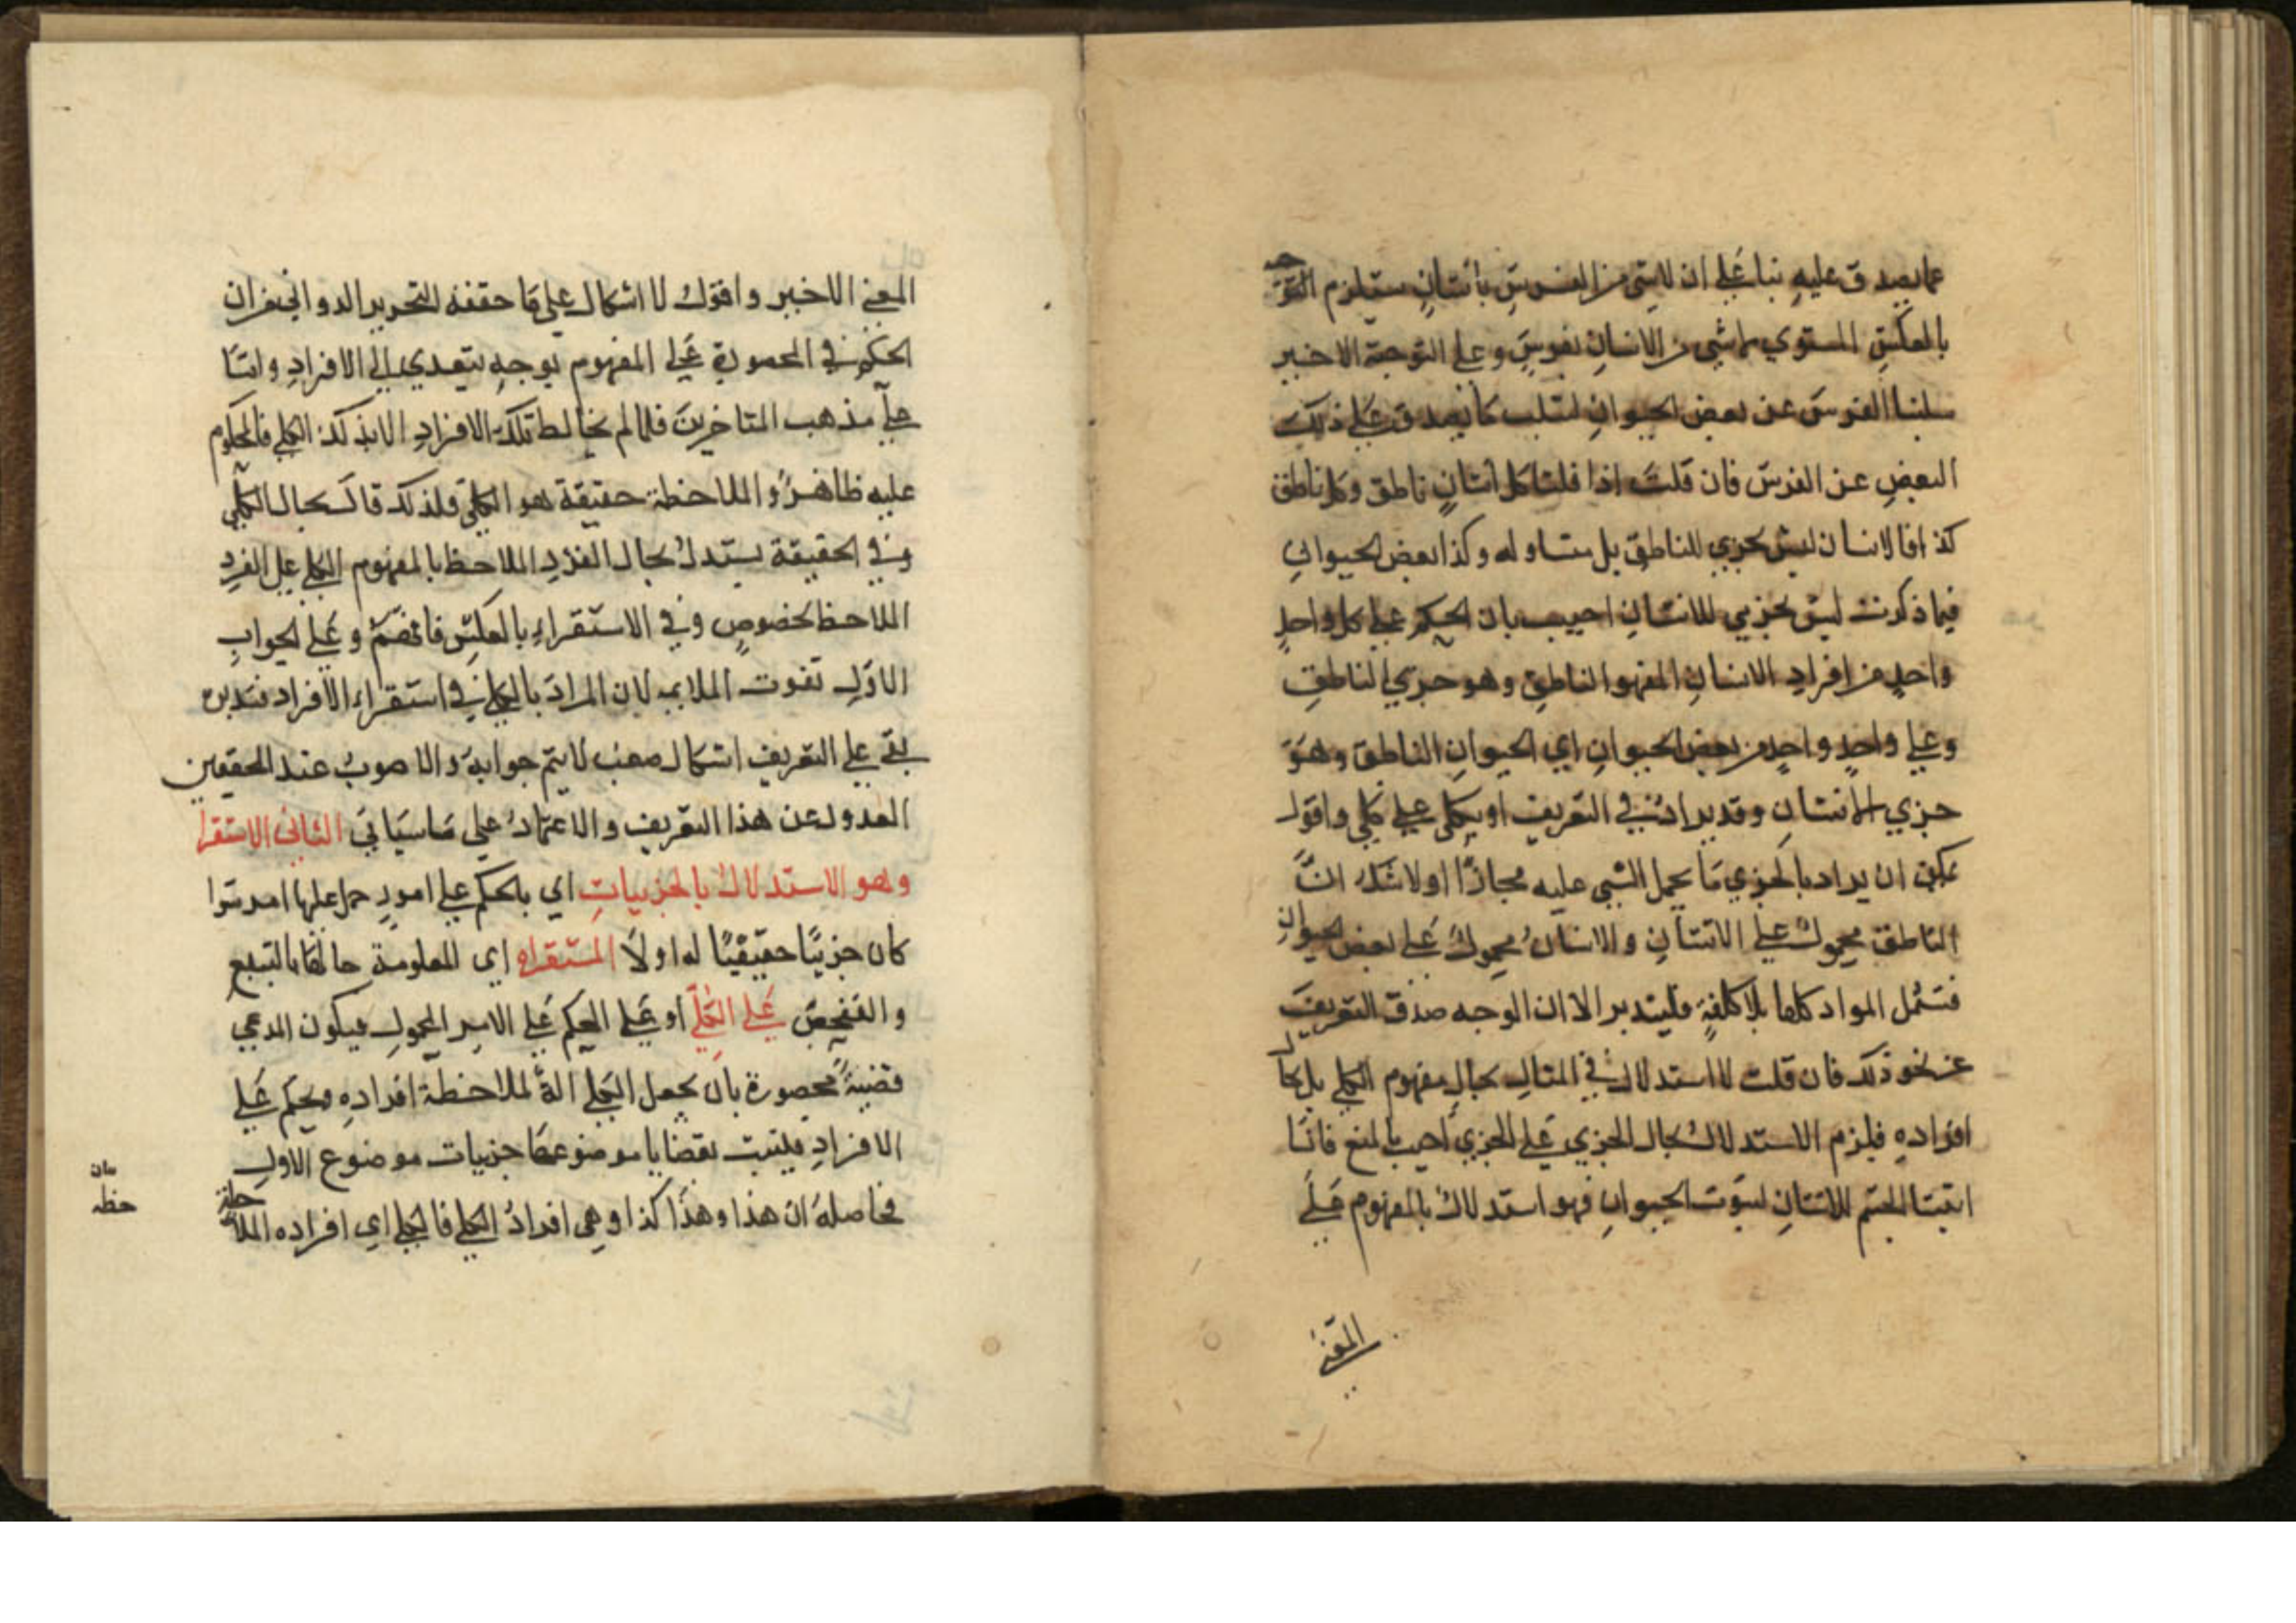 عما يصدق عليه بنا على ان لا شي من الفرس بانسان يستلزم
بالعكس المستوي لا شي من الانسان بفرس وعلى التوجيه الاخير
سلبنا الفرس عن بعض الحيوان لسلب ما يصدق على ذلك
البعض عن الفرس فان قلت اذا قلنا كل انسان ناطق وكل ناطق
كذا فالانسان ليس بجزي للناطق بل مساو له وكذا بعض الحيوان
فيما ذكرت ليس بجزيي للانسان اجيب بان الحكم على كل واحد
واحد من افراد الانسان المفهو الناطق وهو جزي الناطق
وعلى واحد واحد من بعض الحيوان اي الحيوان الناطق وهو
جزي الانسان وقد يراد في التعريف او بكلي على كلي واقول
يمكن ان يراد بالجزي ما يحمل الشي عليه مجازا اولا شك ان
الناطق محمول على الانسان والانسان محمول على بعض الحيوان
فتشمل المواد كلها بلا كلفة فليتدبر الا ان الوجه صدق التعريف
عن نحو ذلك فان قلت لا استدلال في المثال بحال مفهوم الكلي بل بحال
افراده فيلزم الاستدلال بحال الجزي على الجزي اجيب بالمنع فانا
اثبتنا الجسم للانسان لثبوت الحيوان فهو استدلال بالمفهوم على
المعني
المعني الاخير واقول لا اشكال على ما حققه التحرير الدواني من ان
الحكم في المحصورة على المفهوم بوجه يتعدي الى الافراد واما
على مذهب المتاخرين فلما لم يخالط تلك الافراد الا بذلك الكلي فالمحكوم
عليه ظاهرا والملاحظة حقيقة هو الكلي فلذلك قال بحال الكلي
وفي الحقيقة يستدل بحال الفرد الملاحظ بالمفهوم الكلي على الفرد
الملاحظ بخصوص وفي الاستقراء بالعكس فافهم وعلى الجواب
الاول تفوت الملايم لان المراد بالكلي في استقراء الافراد فتدبره
بقي على التعريف اشكال صعب لا يتم جوابه والاصوب عند المحققين
العدول عن هذا التعريف والاعتماد على ما سياتي الثاني الاستقرا
وهو الاستدلال بالجزييات اي بالحكم على امور حمل عليها امر سوا
كان جزييا حقيقيا له اولا المستقراه اي المعلومة حالها بالتتبع
والتفحص على الكلي او على الحكم على الامر المحمول فيكون المدعي
قضية محصورة بان يجعل الكلي الة لملاحظة افراده ويحكم على
الافراد فيثبت بقضايا موضوعها جزيات موضوع الاول
فحاصله ان هذا وهذا كذا وهي افراد الكلي فالكلي اي افراده الملاحظة